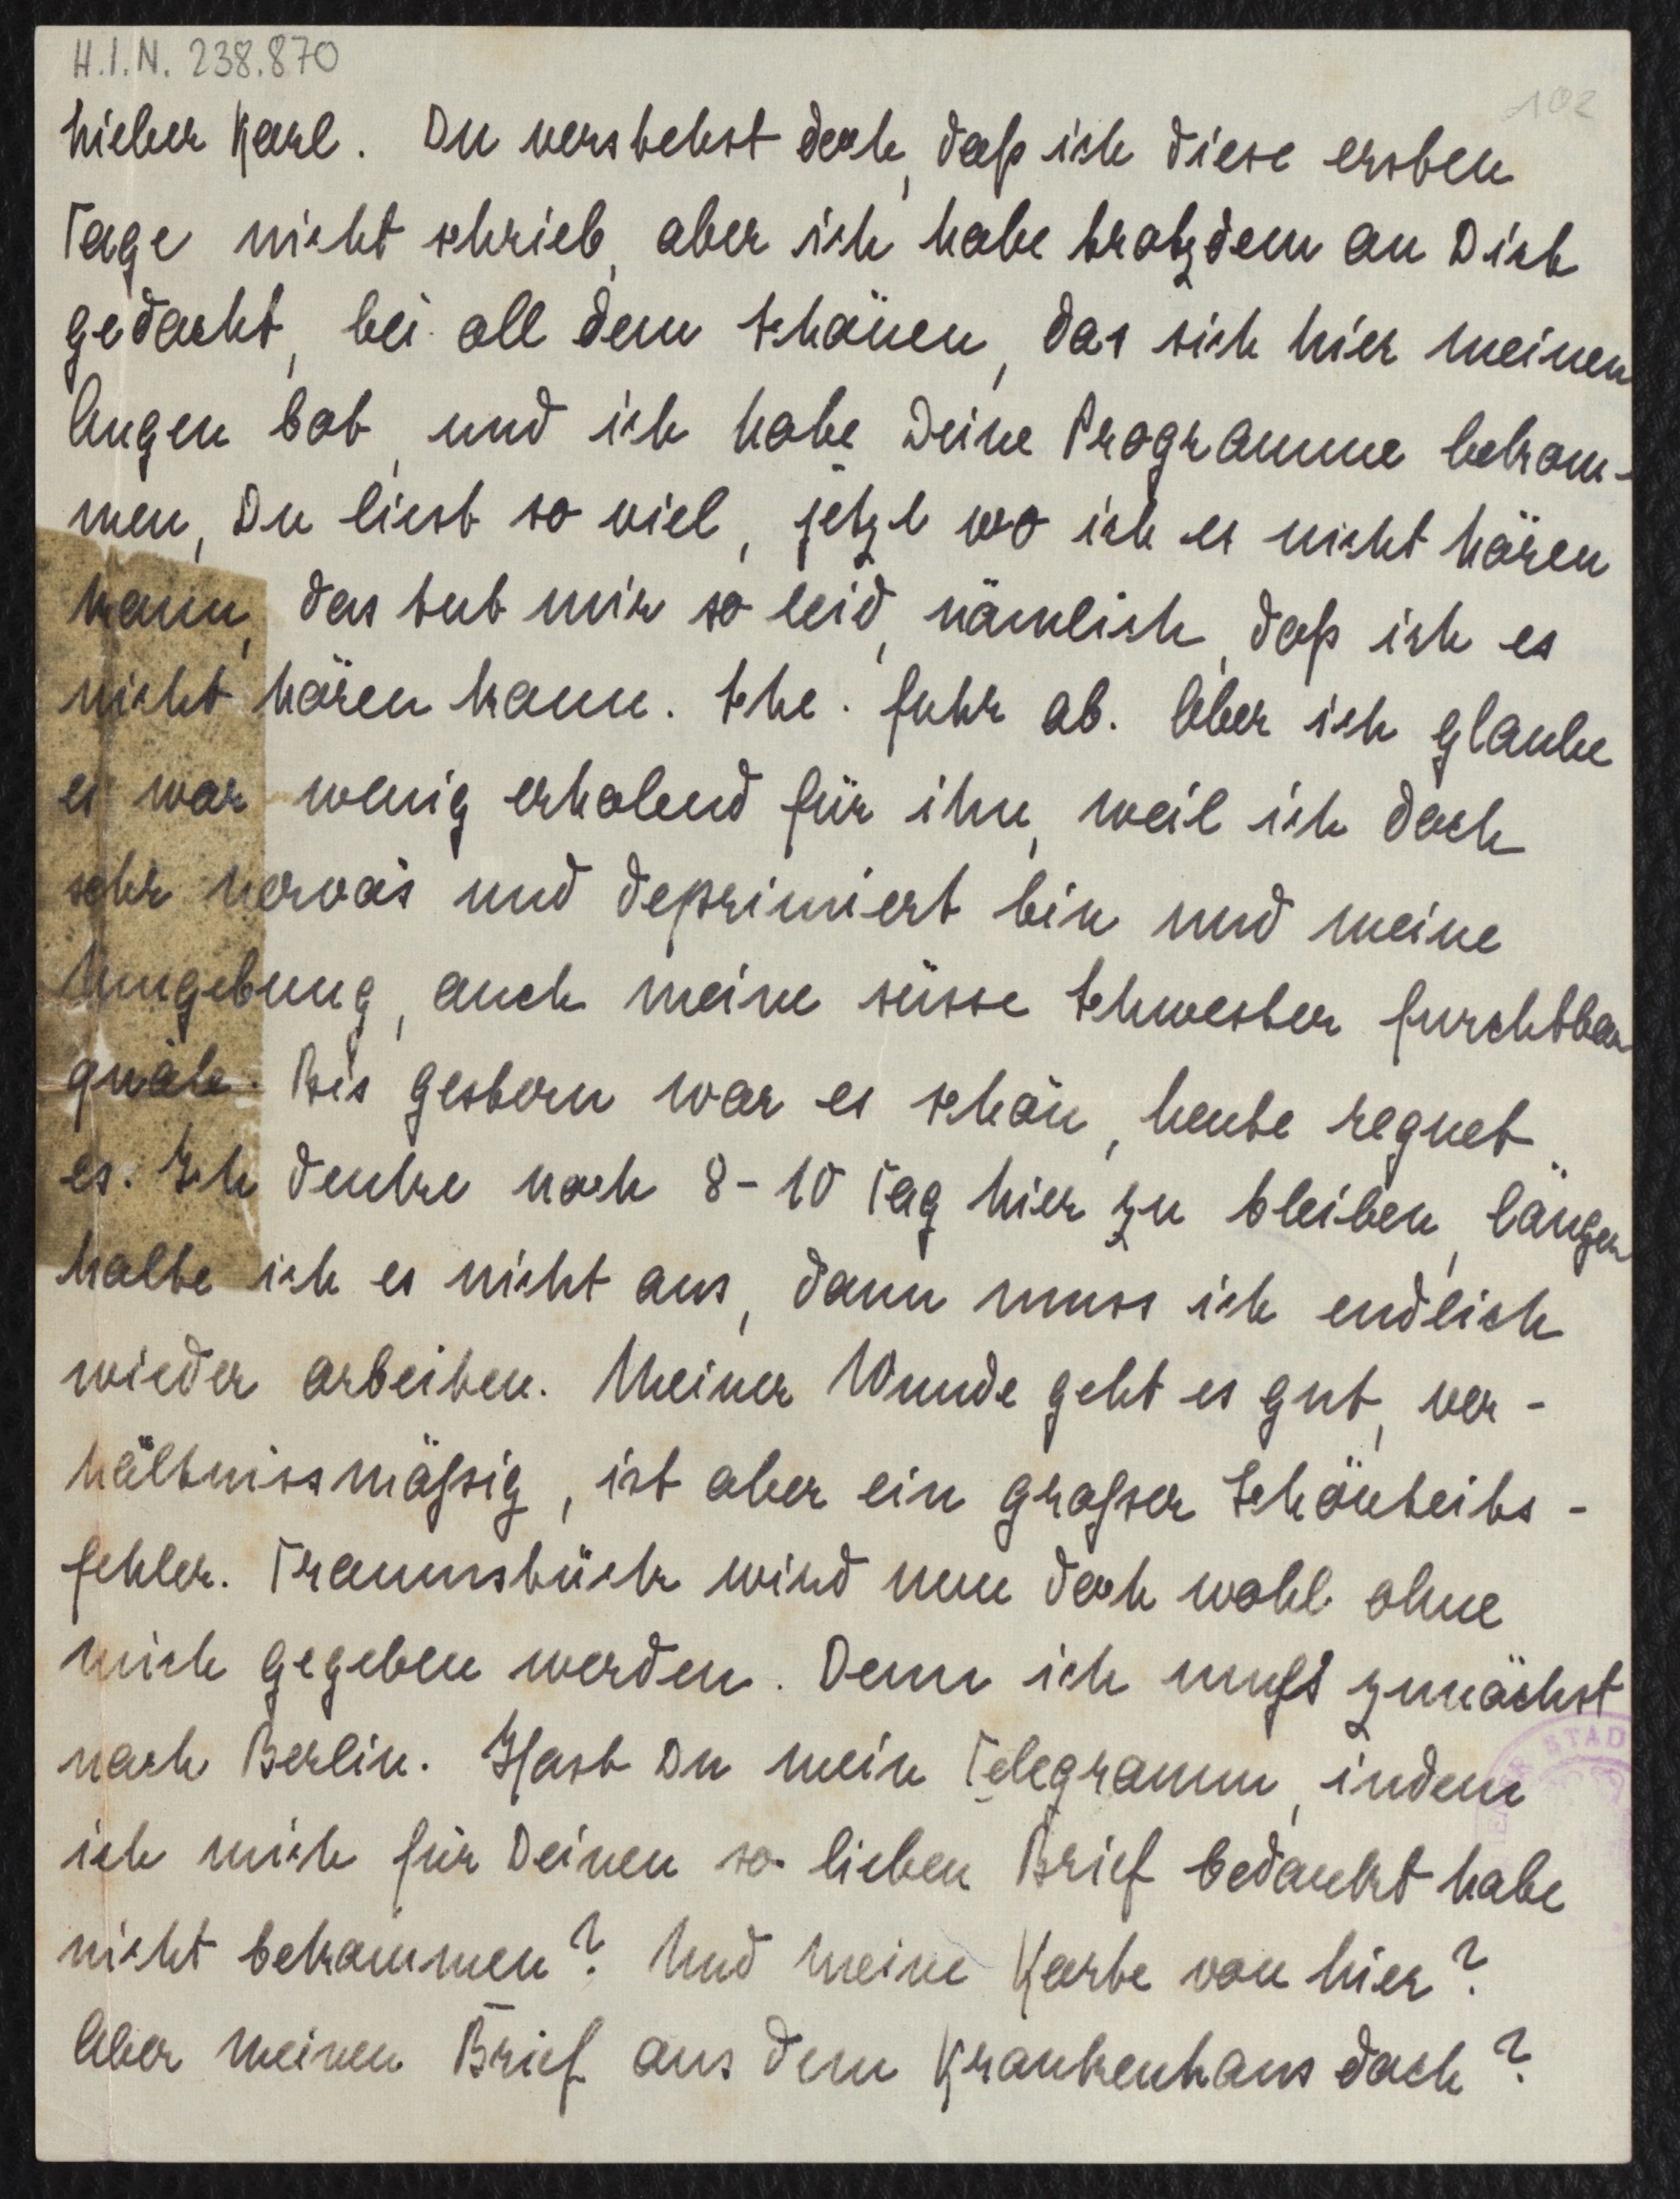 H.I.N. 238.870
102
Lieber Karl. Du verstehst doch, daß ich diese ersten
Tage nicht schrieb, aber ich habe trotzdem an Dich
gedacht, bei all dem Schönen, das sich hier meinen
Augen bot, und ich habe Deine Programme bekom-
men, Du liest so viel, jetzt wo ich es nicht hören
kann, das tut mir so leid, nämlich, daß ich es
nicht hören kann. Sche. fuhr ab. Aber ich glaube
es war wenig erholend für ihn, weil ich doch
sehr nervös und deprimiert bin und meine
Umgebung, auch meine süsse Schwester furchtbar
quäle. Bis gestern war es schön, heute regnet
es. Ich denke noch 8-10 Tag hier zu bleiben, länger
halte ich es nicht aus, dann muss ich endlich
wieder arbeiten. Meiner Wunde geht es gut, ver-
hältnissmäßig, ist aber ein großer Schönheits-
fehler. Traumstück wird nun doch wohl ohne
mich gegeben werden. Denn ich muß zunächst
nach Berlin. Hast Du mein Telegramm, indem
ich mich für Deinen so lieben Brief bedankt habe
nicht bekommen? Und meine Karte von hier?
Aber meinen Brief aus dem Krankenhaus doch?